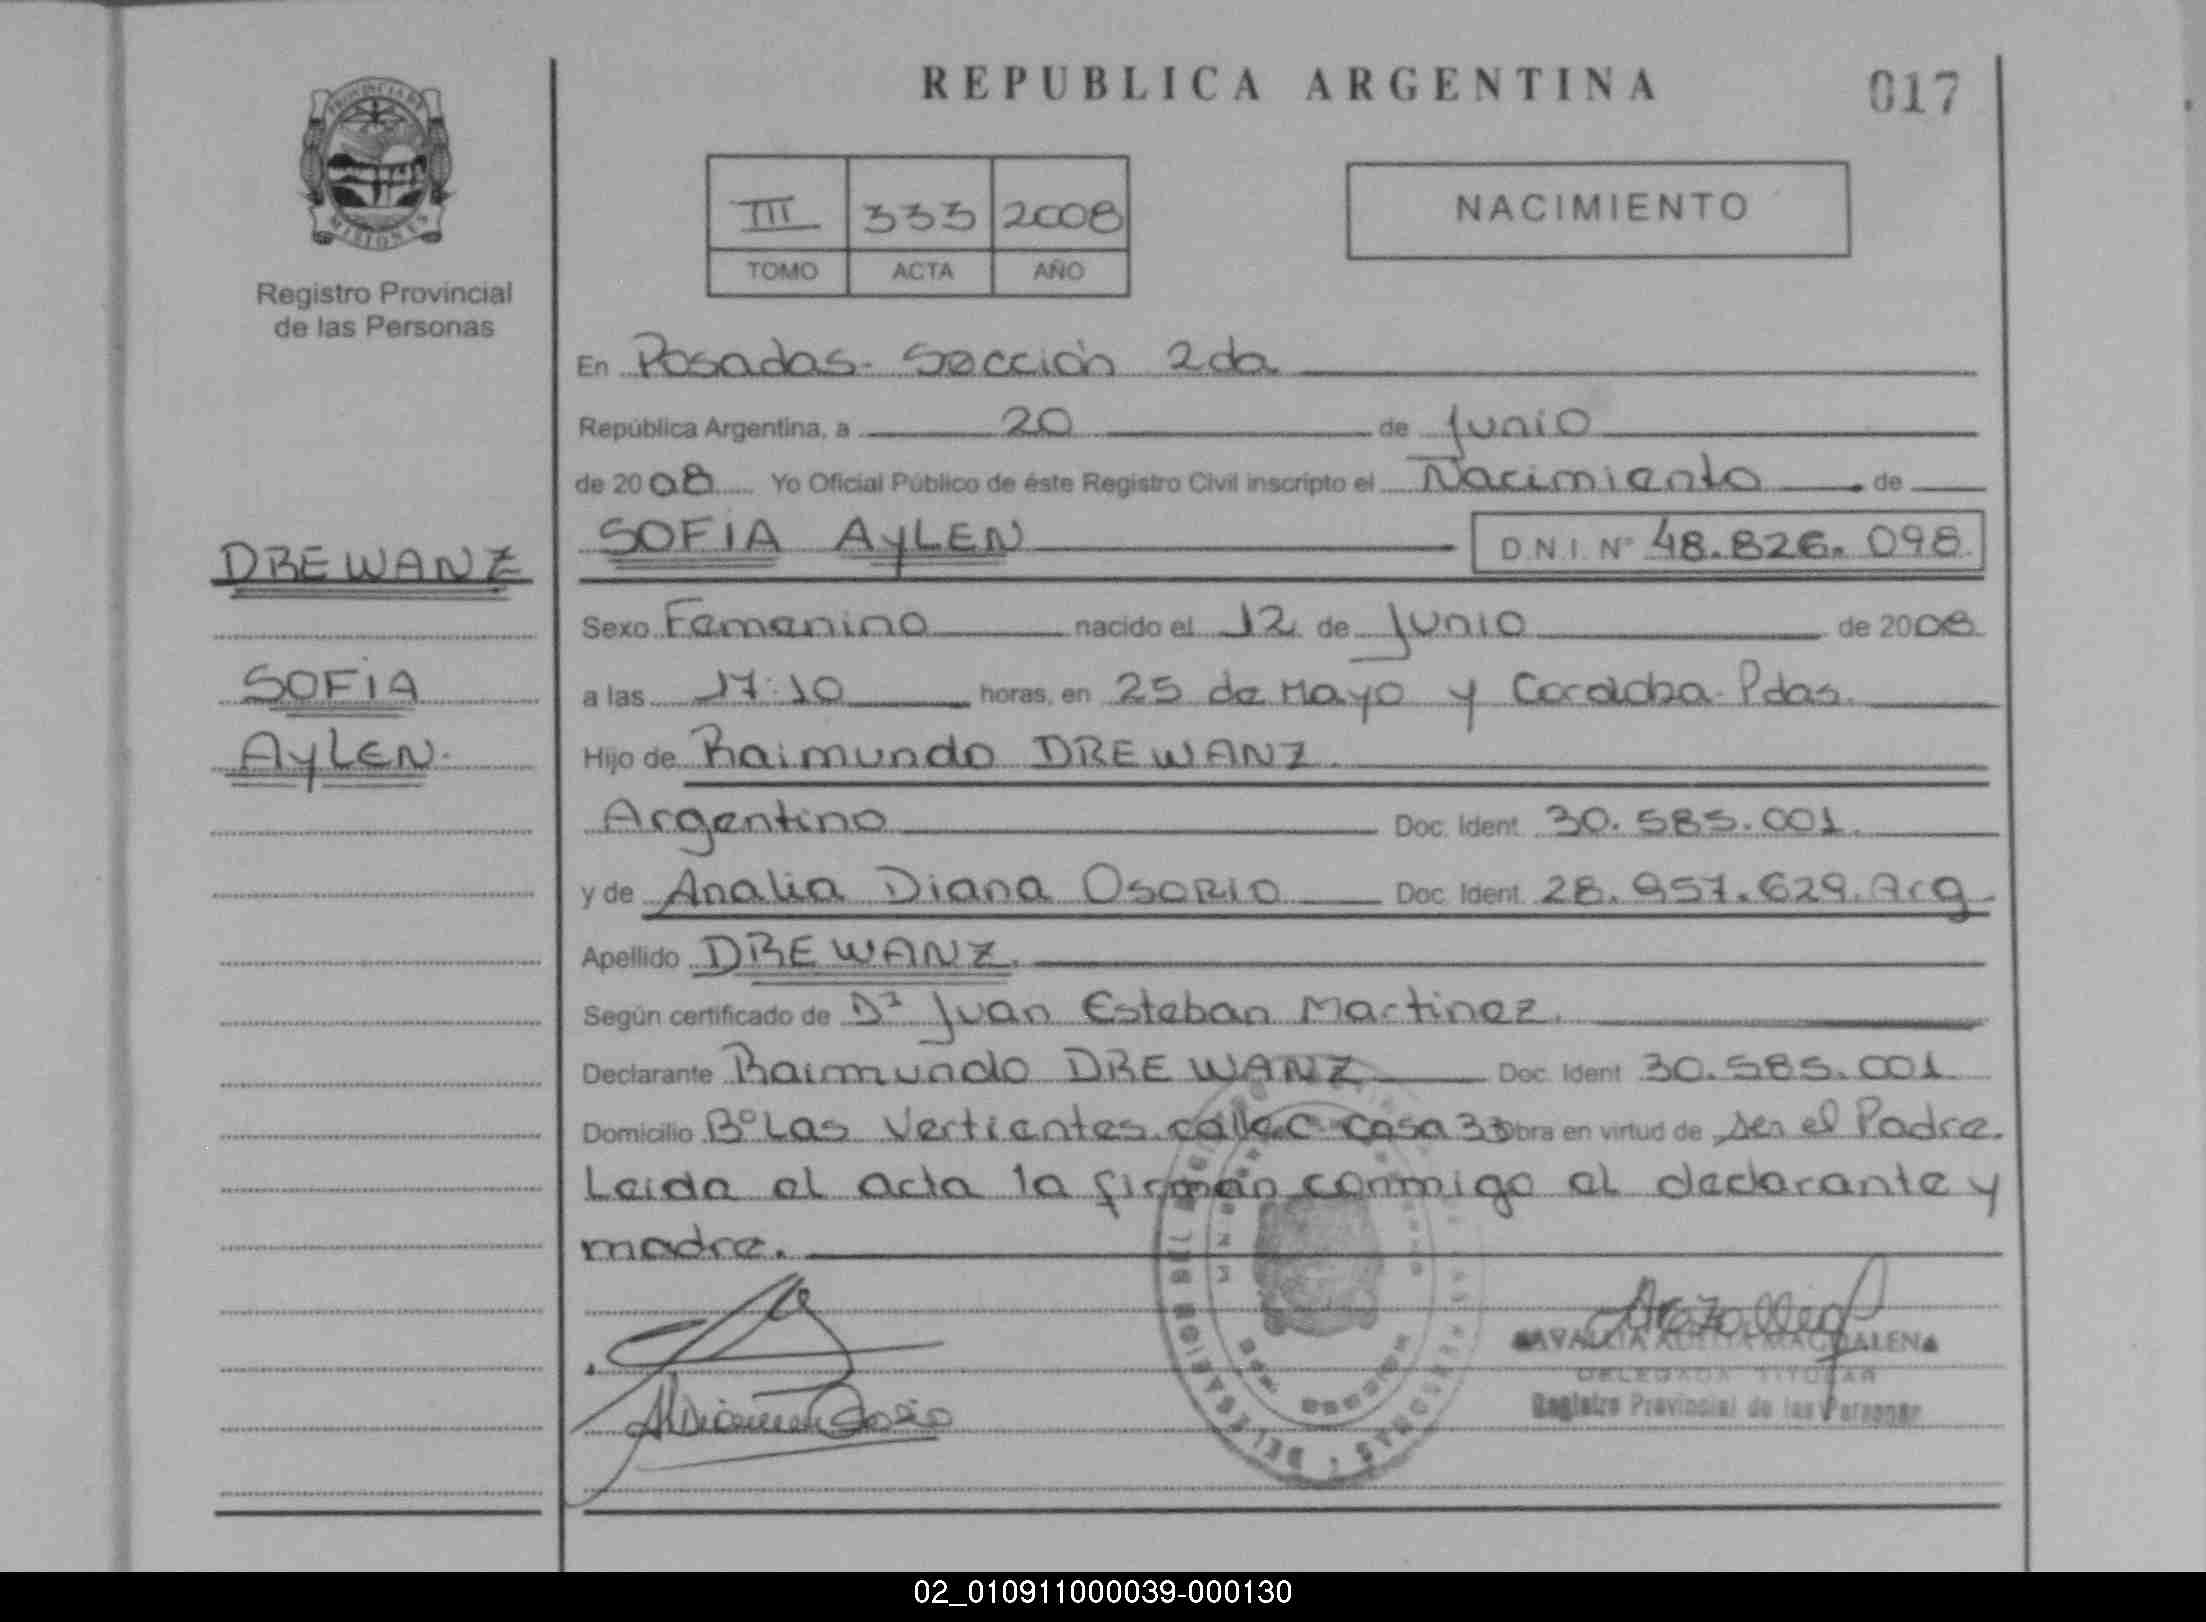 REPUBLICA ARGENTINA
017
PROVINCIA DE
MISIONES
Registro Provincial
de las Personas
III 333 2008
TOMO ACTA AÑO
NACIMIENTO
En Posadas- Sección 2da
República Argentina, a 20 de Junio
de 2008 Yo Oficial Público de éste Registro Civil inscripto el Nacimiento de
SOFIA AyLEN D.N.I. Nº 48.826.098
DREWANZ
SOFIA
AyLEN.
Sexo Femenino nacido el 12 de Junio de 2008
a las 17:10 horas, en 25 de Mayo y Cordoba- Pdas.
Hijo de Raimundo DREWANZ.
Argentino Doc. Ident. 30.585.001.
y de Analia Diana OSORIO Doc. Ident. 28.957.629. Arg
Apellido DREWANZ.
Según certificado de Juan Esteban Martinez.
Declarante Raimundo DREWANZ Doc. Ident. 30.585.001
Domicilio Bº Las Vertientes calle C casa 33 Obra en virtud de ser el Padre.
Leida el acta la firman conmigo el declarante y
madre.
MAGDALENA
DELEGADA TITULAR
Registro Provincial de las Personas
02_010911000039-000130